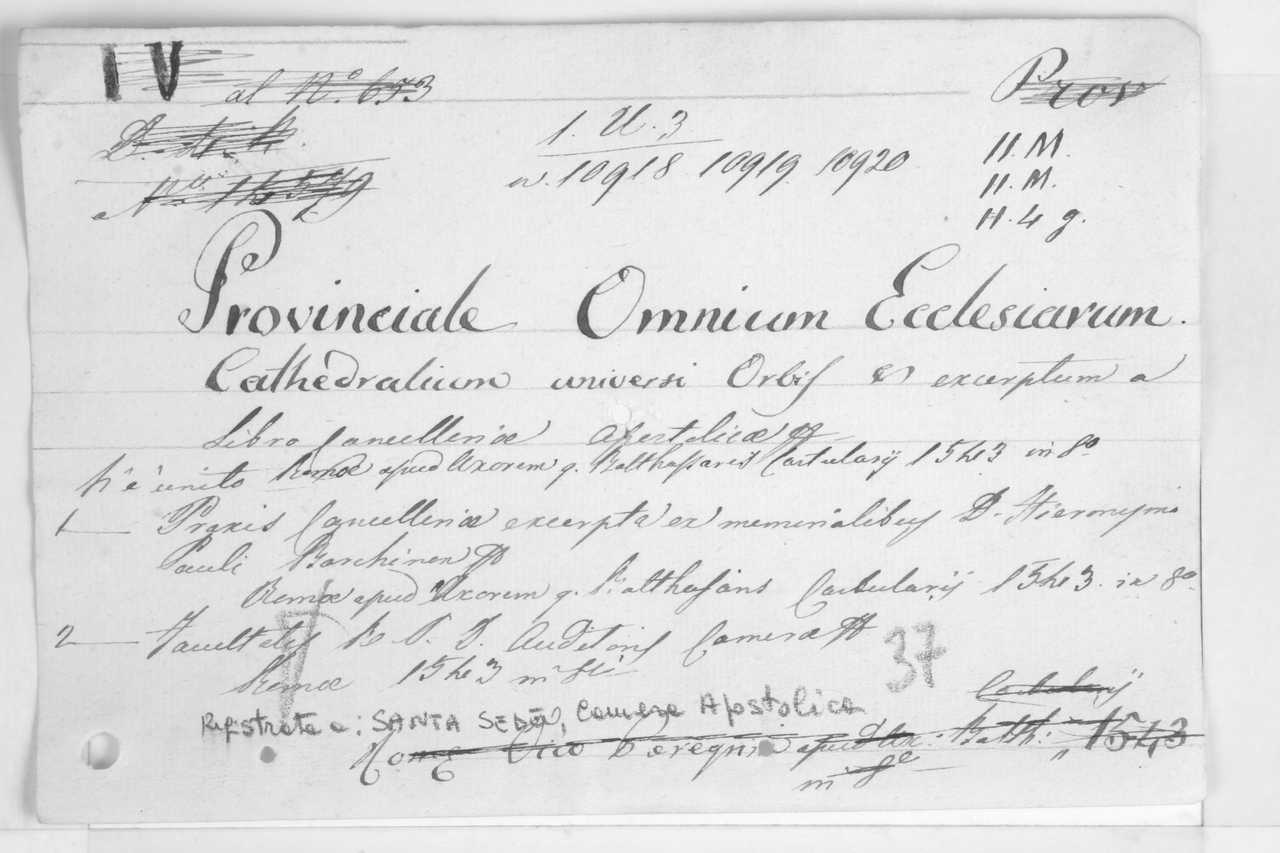 IV al N.º 653 Prov
1. U. 3 H. M.
N.º
n. 10918 10919 10920 H. M.
H. 4 g.
Provinciale Omnium Ecclesiarum.
Cathedralium universi Orbis excerptum a
Libro Cancellariæ Apostolicæ
v'è unito Romæ apud Uxorem q. Balthassaris Cartularij 1543 in 8º
1 — Praxis Cancellariæ excerpta ex memorialibus D. Hieronymi
Pauli Barchinon
Romæ apud Uxorem q. Balthasaris Cartularij 1543. in 8º
2 — Facultates R. P. D. Auditoris Cameræ 37
Romæ 1543
Cartularij
Registrato a: SANTA SEDE, Camera Apostolica
apud Ux. Balth: 1543